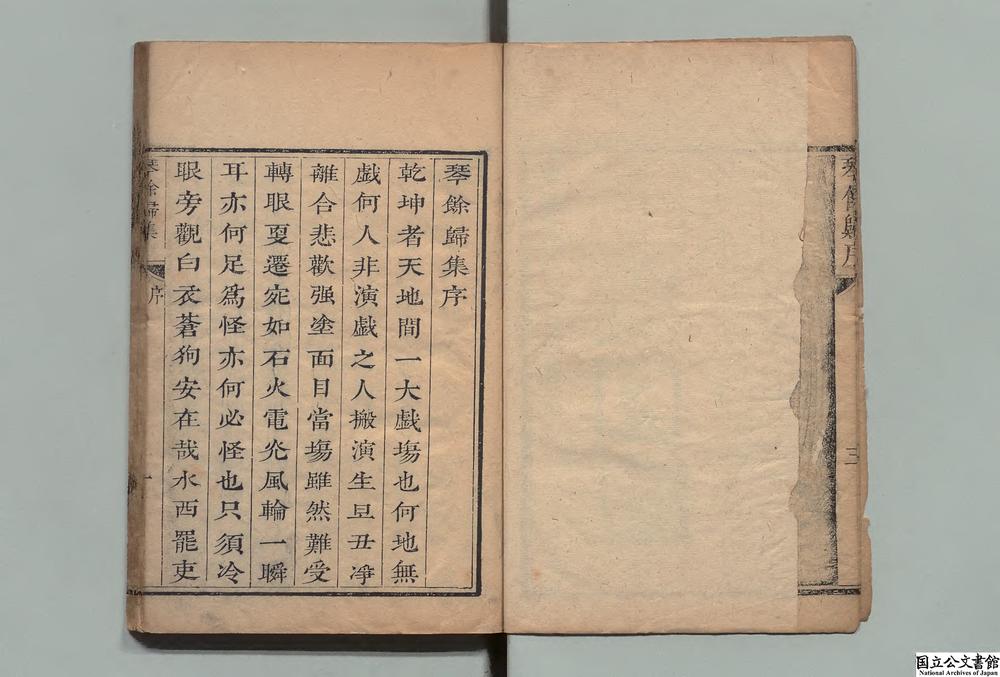 琴餘歸序
三
琴餘歸集序
乾坤者天地間一大戲塲也何地無
戲何人非演戲之人搬演生旦丑凈
離合悲歡强塗面目當塲雖然難受
轉眼叓遷宛如石火電炎風輪一瞬
耳亦何足爲怪亦何必怪也只須冷
眼旁觀白衣蒼狗安在哉水西罷吏
琴餘歸集
序
一
国立公文書館
National Archives of Japan